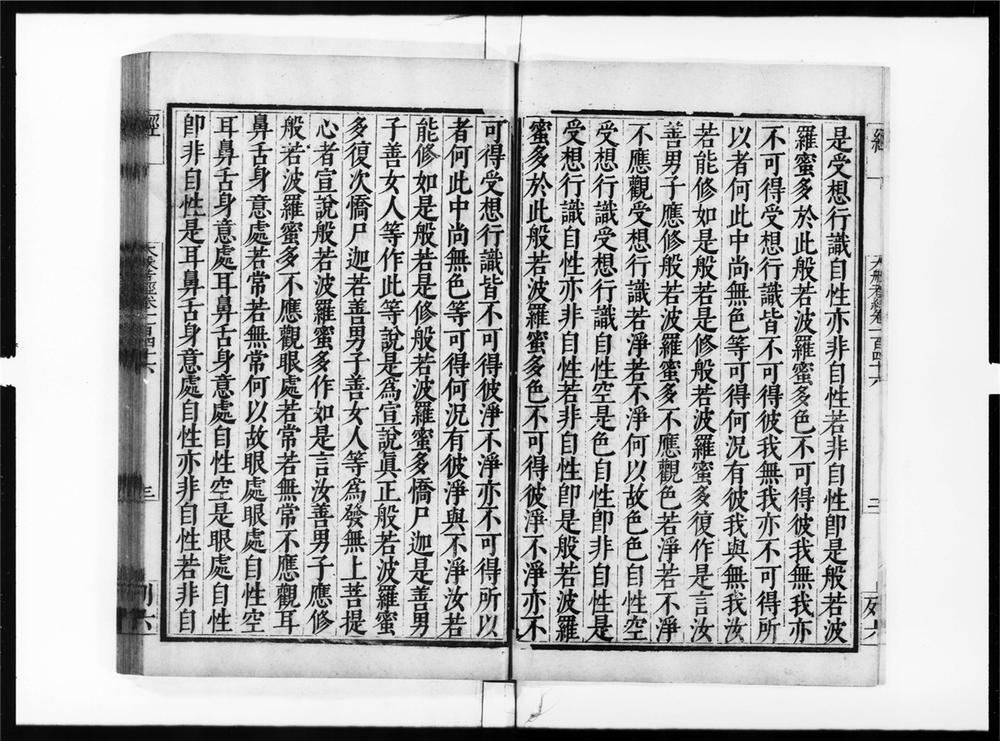 是受想行識自性亦非自性若非自性卽是般若波
羅蜜多於此般若波羅蜜多色不可得彼我無我亦
不可得受想行識皆不可得彼我無我亦不可得所
以者何此中尚無色等可得何況有彼我與無我汝
若能修如是般若是修般若波羅蜜多復作是言汝
善男子應修般若波羅蜜多不應觀色若淨若不淨
不應觀受想行識若淨若不淨何以故色色自性空
受想行識受想行識自性空是色自性卽非自性是
受想行識自性亦非自性若非自性卽是般若波羅
蜜多於此般若波羅蜜多色不可得彼淨不淨亦不
可得受想行識皆不可得彼淨不淨亦不可得所以
者何此中尚無色等可得何況有彼淨與不淨汝若
能修如是般若是修般若波羅蜜多憍尸迦是善男
子善女人等作此等說是爲宣說眞正般若波羅蜜
多復次憍尸迦若善男子善女人等爲發無上菩提
心者宣說般若波羅蜜多作如是言汝善男子應修
般若波羅蜜多不應觀眼處若常若無常不應觀耳
鼻舌身意處若常若無常何以故眼處眼處自性空
耳鼻舌身意處耳鼻舌身意處自性空是眼處自性
卽非自性是耳鼻舌身意處自性亦非自性若非自
經
大般若經卷一百四十六
三